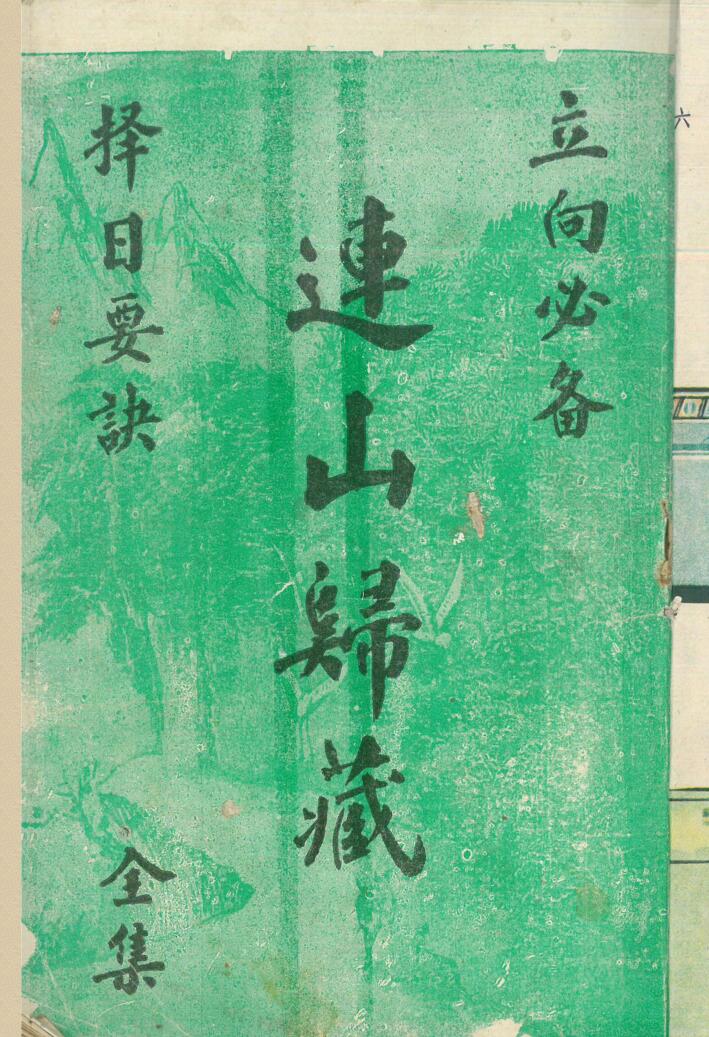 立向必备
連山歸藏
择日要訣
全集
六